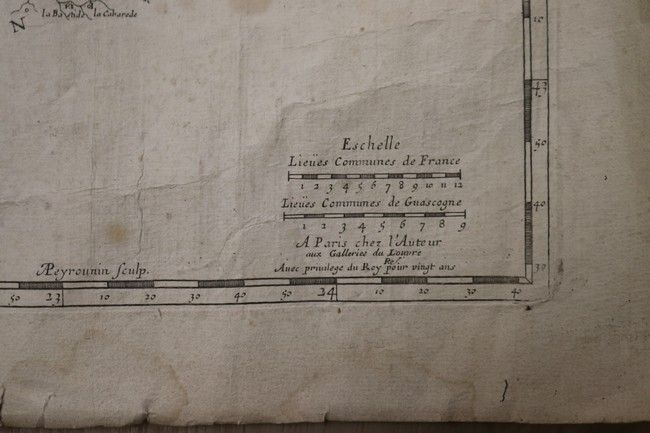 N
la Bastide la Cabarede
10
43
50
40
30
Eschelle
Lieües Communes de France
1 2 3 4 5 6 7 8 9 10 11 12
Lieües Communes de Guascogne
1 2 3 4 5 6 7 8 9
A Paris chez l'Auteur
aux Galleries du Louvre
Avec privilege du Roy pour vingt ans
Peyrounin sculp.
50 23 10 20 30 40 50 24 10 20 30 40